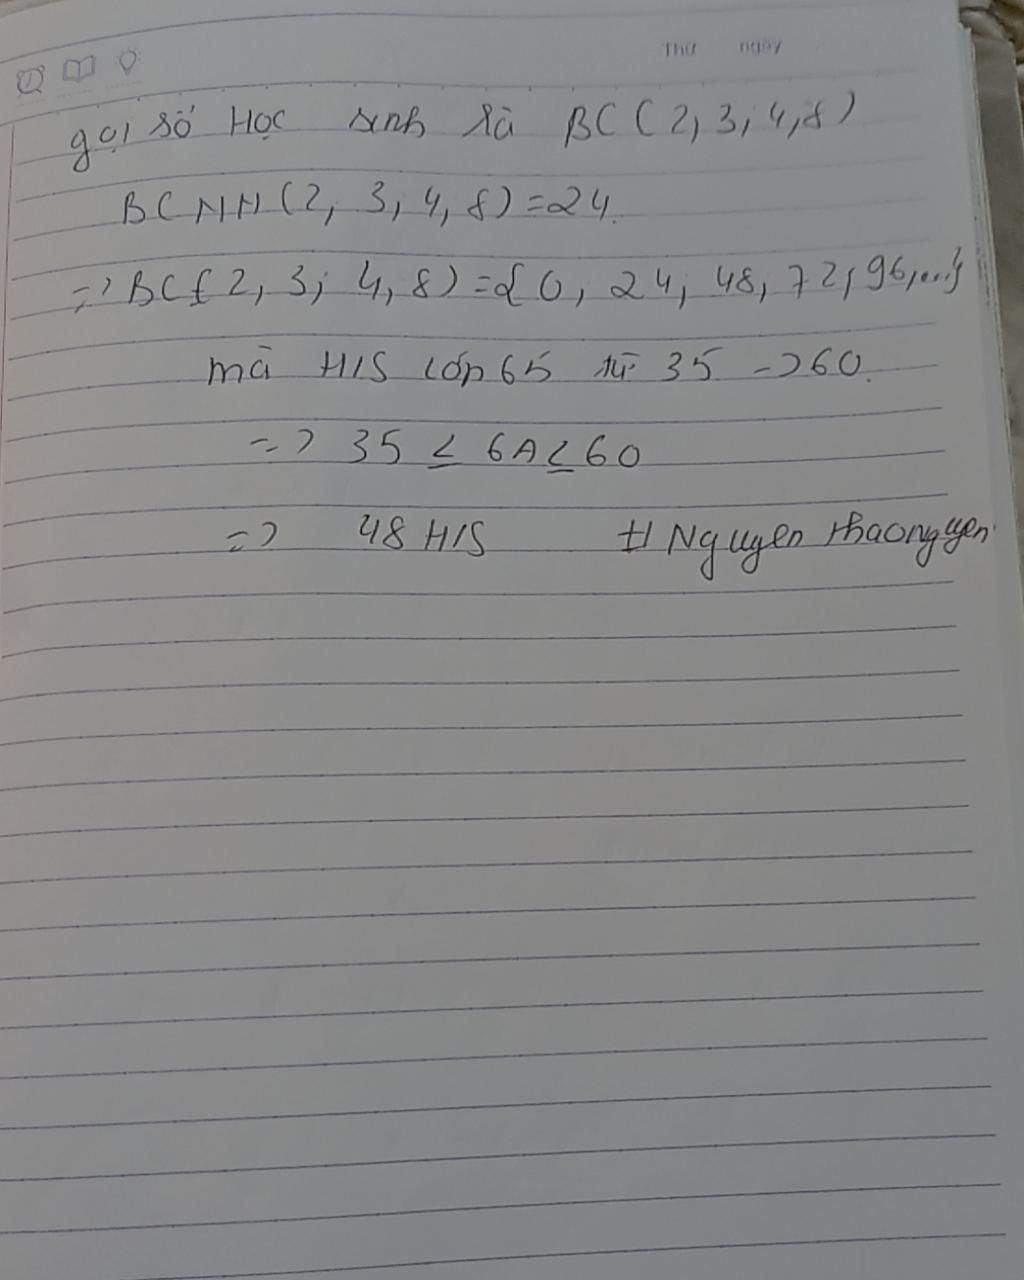 Thứ ngày
gọi số Học sinh là BC (2, 3, 4, 8)
BCNN (2, 3, 4, 8) = 24.
=> BC (2, 3; 4, 8) = {0, 24, 48, 72, 96,...}
mà H/S lớp 65 từ 35 -> 60.
=> 35 ≤ 6A ≤ 60
=> 48 H/S # Nguyen thaonguyen